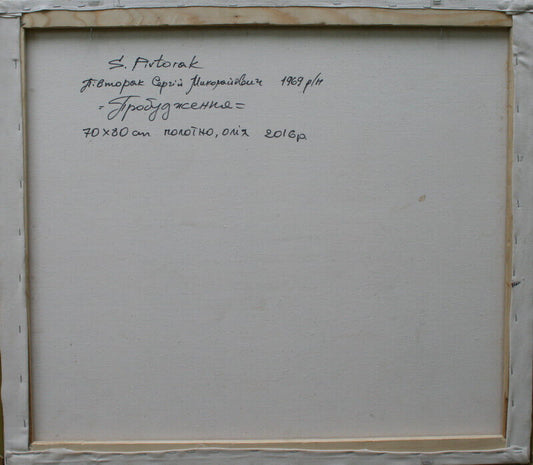 S. Pivtorak
Півторак Сергій Миколайович 1969 р/н
"Пробудження"
70×80 cm полотно, олія 2016р